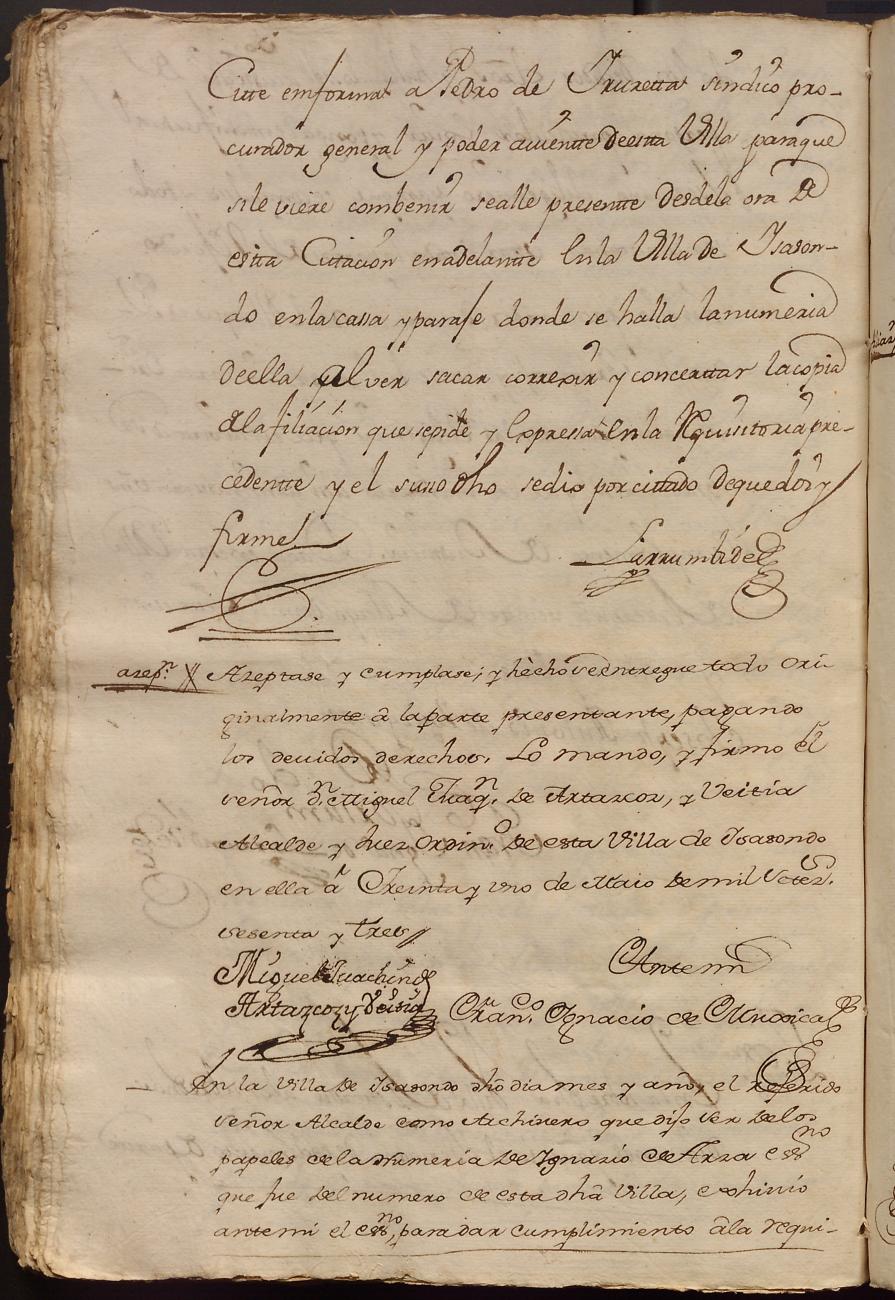 Citte emforma a Pedro de Yruretta sindico pro-
curador general y poder aviente deesta Villa paraque
sile viere combenir sealle presente desdela ora de
esta Cittacion enadelante enla Villa de Ysason-
do enla cassa y paraje donde se halla lanumeria
deella al ver sacar correxir y concerttar lacopia
dela filiacion que sepide y expressa enla Requisitoria pre-
cedentte y el suso dho sedio por cittado dequedoi y
firme
Larrumbide
azep.n Azeptase y cumplase; y hècho se entregue todo ori-
ginalmente â la parte presentante, pagando
los devidos derechos. Lo mando, y firmo el
señor D.n Miguel Juaq.n de Artazcoz, y Veitia
Alcalde y Juez Ordin.o de esta Villa de Ysasondo
en ella â Treinta y uno de Maio de mil Setez.s
sesenta y tres
Miguel Juachin de
Artazcoz y Veitia
Antemi
Fran.co Ygnacio de Muxica
En la Villa de Ysasondo dho dia mes y año, el referido
señor Alcalde como Archivero que dijo ser de los
papeles de la Numeria de Ygnazio de Arza ess.no
que fue del numero de esta dhâ Villa, exhivio
ante mi el ess.no para dar cumplimiento âla requi-